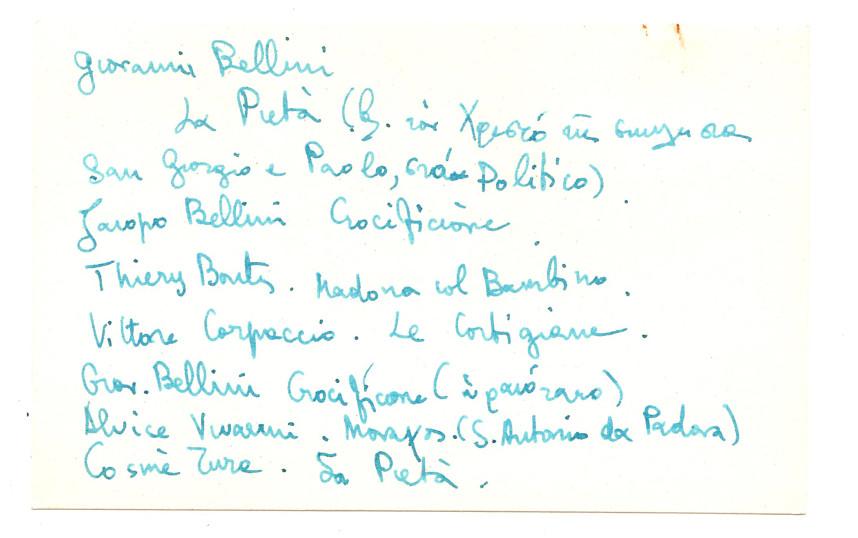 Giovanni Bellini
La Pietà (B. τόν Χριστό
San Giorgio e Paolo, στό Politico)
Jacopo Bellini Crocificione
Thiery Bouts. Madona col Bambino.
Vittore Carpaccio. Le Cortigiane.
Giov. Bellini Crocificone (
Alvice Vivarini. Μοναχος. (S. Antonio da Padova)
Cosmè Tura. La Pietà.